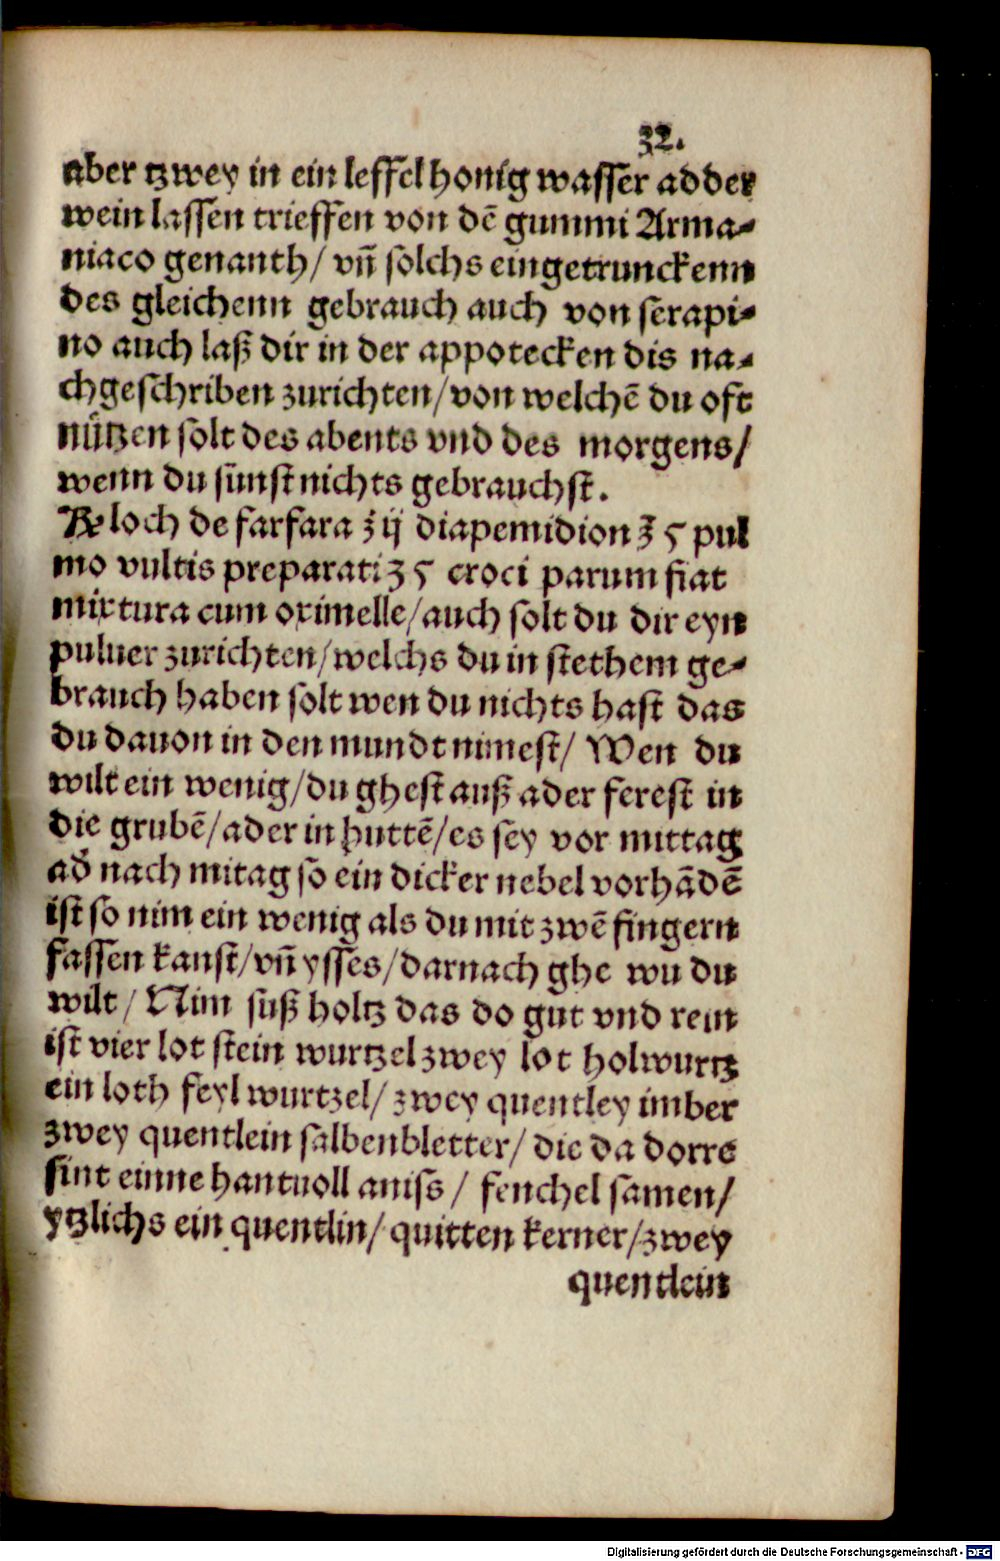 32.
aber tzwey in ein leffel honig wasser adder
wein lassen trieffen von dē gummi Arma-
niaco genanth/ vn̄ solchs eingetrunckenn
des gleichenn gebrauch auch von serapi-
no auch laß dir in der appotecken dis na-
chgeschriben zurichten/ von welchē du oft
nützen solt des abents vnd des morgens/
wenn du sunst nichts gebrauchst.
℞ loch de farfara ʒ ij diapemidion ʒ ϛ pul
mo vultis preparati ʒ ϛ croci parum fiat
mixtura cum oximelle/ auch solt du dir eyn
puluer zurichten/ welchs du in stethem ge-
brauch haben solt wen du nichts hast das
du dauon in den mundt nimest/ Wen du
wilt ein wenig/ du ghest auß ader ferest in
die grubē/ ader in huttē/ es sey vor mittag
ad' nach mitag so ein dicker nebel vorhādē
ist so nim ein wenig als du mit zwē fingern
fassen kanst/ vn̄ ysses/ darnach ghe wu du
wilt/ Nim suß holtz das do gut vnd rein
ist vier lot stein wurtzel zwey lot holwurtz
ein loth feyl wurtzel/ zwey quentley imber
zwey quentlein salbenbletter/ die da dorre
sint einne hantuoll aniss/ fenchel samen/
ytzlichs ein quentlin/ quitten kerner/ zwey
quentlein
Digitalisierung gefördert durch die Deutsche Forschungsgemeinschaft - DFG